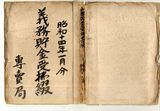 昭和十四年一月分
義務貯金受払綴
専賣局